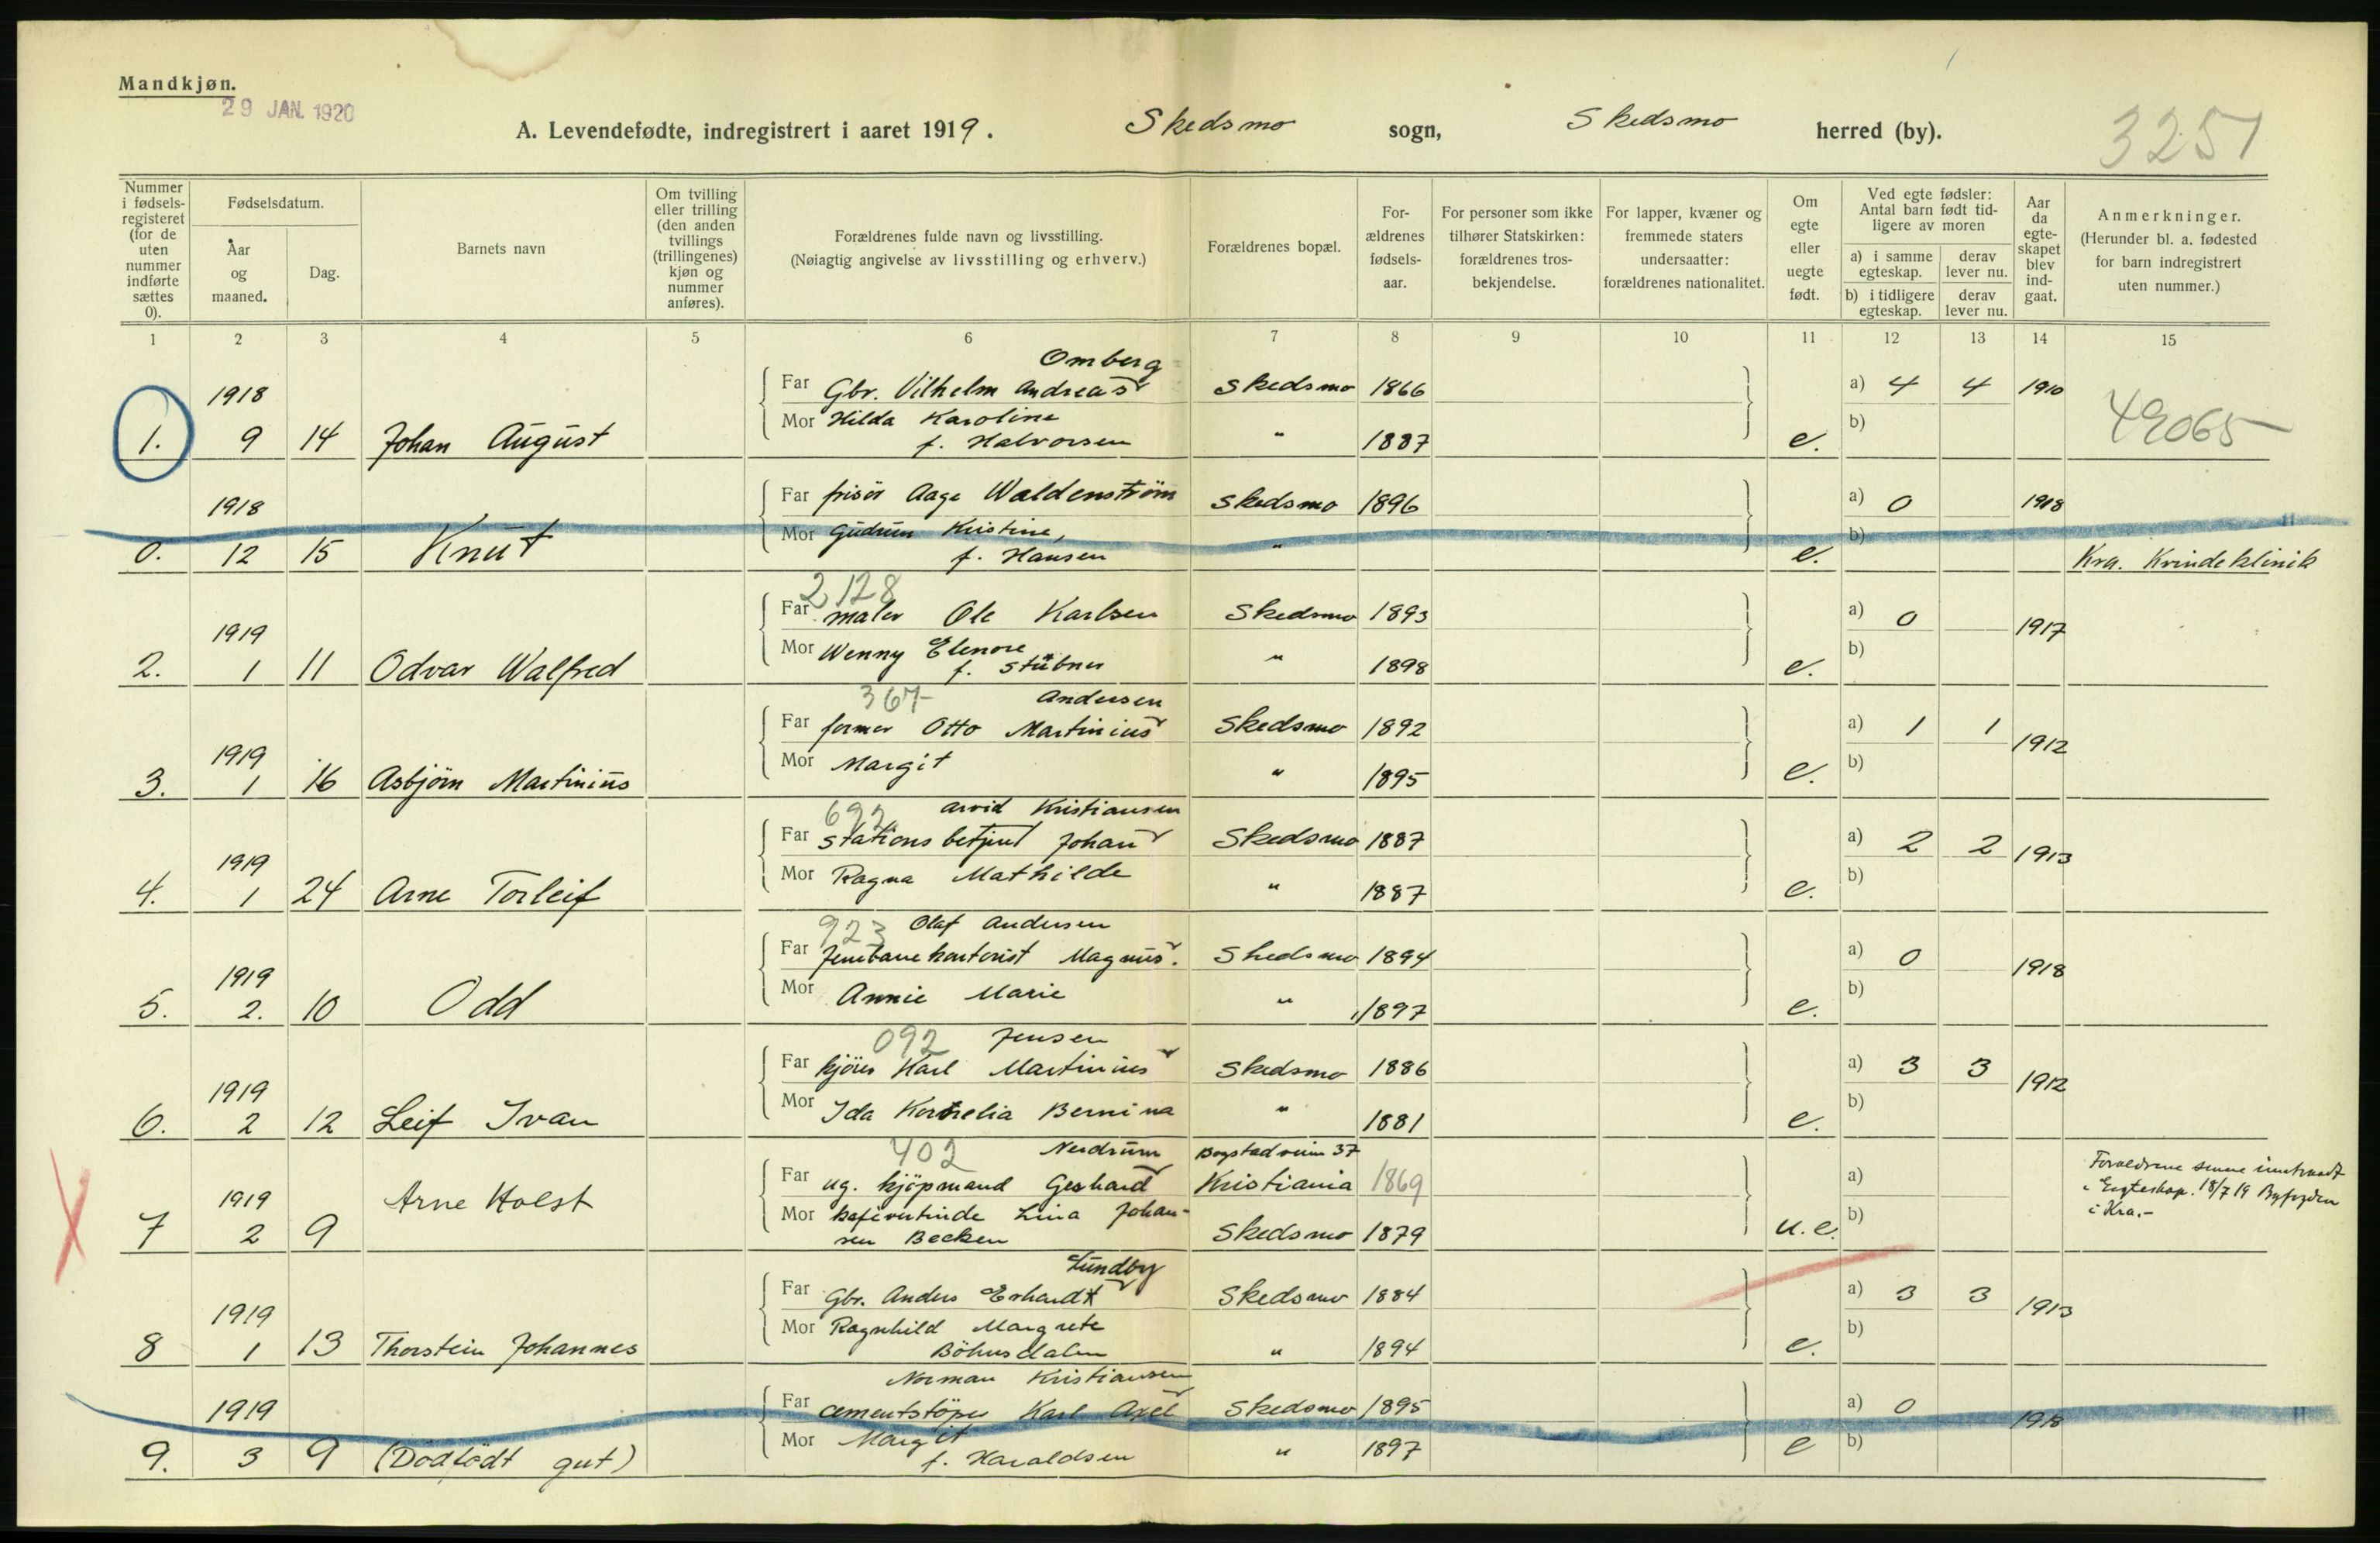 Mandkjøn.
29 JAN. 1920
A. Levendefødte, indregistrert i aaret 1919. Skedsmo sogn, Skedsmo herred (by).
3251
Nummer i fødsels-registeret (for de uten nummer indførte sættes 0).
Fødselsdatum.
Aar og maaned.
Dag.
Barnets navn
Om tvilling eller trilling (den anden tvillings (trillingenes) kjøn og nummer anføres).
Forældrenes fulde navn og livsstilling.
(Nøiagtig angivelse av livsstilling og erhverv.)
Forældrenes bopæl.
For-ældrenes fødsels-aar.
For personer som ikke tilhører Statskirken: forældrenes tros-bekjendelse.
For lapper, kvæner og fremmede staters undersaatter: forældrenes nationalitet.
Om egte eller uegte født.
Ved egte fødsler: Antal barn født tid-ligere av moren
a) i samme egteskap.
derav lever nu.
b) i tidligere egteskap.
derav lever nu.
Aar da egte-skapet blev ind-gaat.
Anmerkninger.
(Herunder bl. a. fødested for barn indregistrert uten nummer.)
1 2 3 4 5 6 7 8 9 10 11 12 13 14 15
Omberg
1918 Far Gbr. Vilhelm Andreas Skedsmo 1866 a) 4 4 1910
Mor Hilda Karoline b) 49065
1. 9 14 Johan August f. Halvorsen " 1887 e.
1918 Far frisör Aage Waldenström Skedsmo 1896 a) 0 1918
Mor Gudrun Kristine, b)
0. 12 15 Knut f. Hansen " e. Kra. Kvindeklinik
2128
1919 Far maler Ole Karlsen Skedsmo 1893 a) 0 1917
Mor Wenny Elenore b)
2. 1 11 Odvar Walfred f. Stübner " 1898 e.
367 Andersen
Far former Otto Martinius Skedsmo 1892 a) 1 1 1912
1919 Mor Margit b)
3. 1 16 Asbjörn Martinius " 1895 e.
692 Arvid Kristiansen
Far stationsbetjent Johan Skedsmo 1887 a) 2 2 1913
1919 Mor Ragna Mathilde b)
4. 1 24 Arne Torleif " 1887 e.
923 Olaf Andersen
Far Jernbanekontorist Magnus. Skedsmo 1894 a) 0 1918
1919 Mor Annie Marie b)
5. 2. 10 Odd " 1897 e.
092 Jensen
Far kjörer Karl Martinius Skedsmo 1886 a) 3 3 1912
1919 Mor Ida Kornelia Bernina b)
6. 2 12 Leif Ivan " 1881 e.
402 Nerdrum Bogstadveien 37
Far ug. kjöpmand Gerhard Kristiania 1869 a)
1919 Arne Holst Mor kafévertinde Lina Johan- b)
7 2 9 sen Becken Skedsmo 1879 u.e.
Forældrene senere inntraadt
i Egteskap. 18/7 19 Byfogden
i Kra.-
Lundby
Far Gbr. Anders Erhardt Skedsmo 1884 a) 3 3 1913
1919 Mor Ragnhild Margrete b)
8 1 13 Thorstein Johannes Böhnsdalen " 1894 e.
Norman Kristiansen
1919 Far cementstöper Karl Axel Skedsmo 1895 a) 0 1918
Mor Margit b)
9. 3 9 (Dödfödt gut) f. Haraldsen " 1897 e